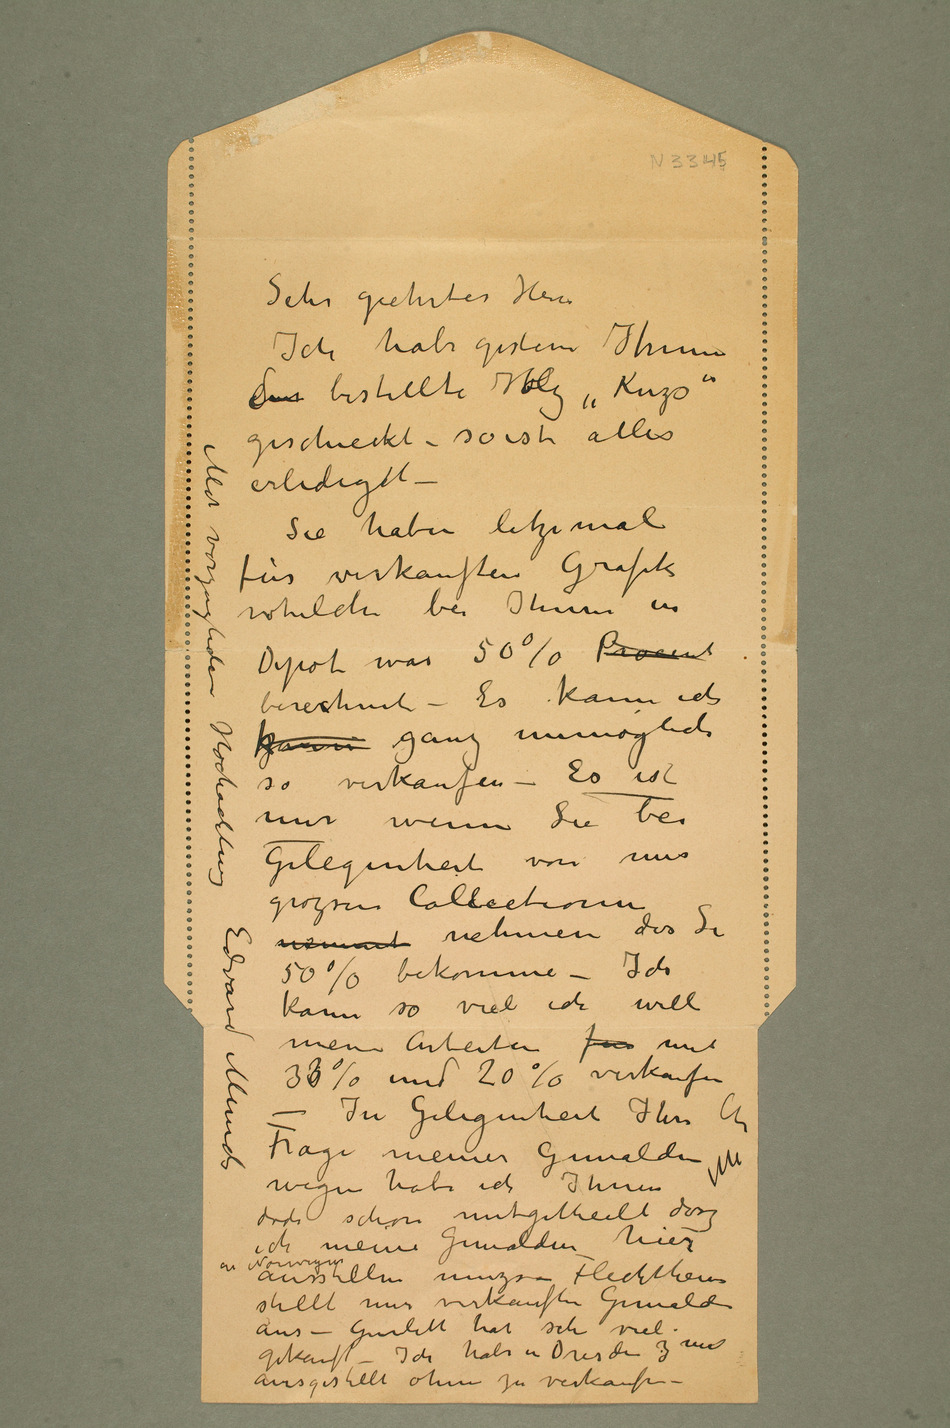 N 3345
Sehr geehrter Herr
Ich habe gestern Ihnen
den bestellte Holz „Kuzs"
geschieckt – so ist alles
erledigdt –
Sie haben letzemal
für verkauften Grafik
whelche bei Ihnen in
Depot war 50% Procent
berechnet – Es kann ich
kann ganz unmöglich
so verkaufen – Es ist
nur wenn Sie bei
Gelegenheit von mir
grozsen Collectionen
nemmt nehmen das Si
50% bekomme – Ich
kann so viel ich will
meine Arbeiten für mit
33% und 20% verkaufen
– In Gelegenheit Ihre
Frage meiner Gemälden
wegen habe ich Ihnen jetzt
doch schon mitgetheilt dasz
ich meine Gemälden hier
in Norwegen
ausstellen muzs – Flechtheim
stellt nur verkaufte Gemälde
aus – Gurlitt hat sehr viel
gekauft – Ich habe in Dresden z nur
ausgestellt ohne zu verkaufen –
Mit vorzüglichen Hochachtung
Edvard Munch